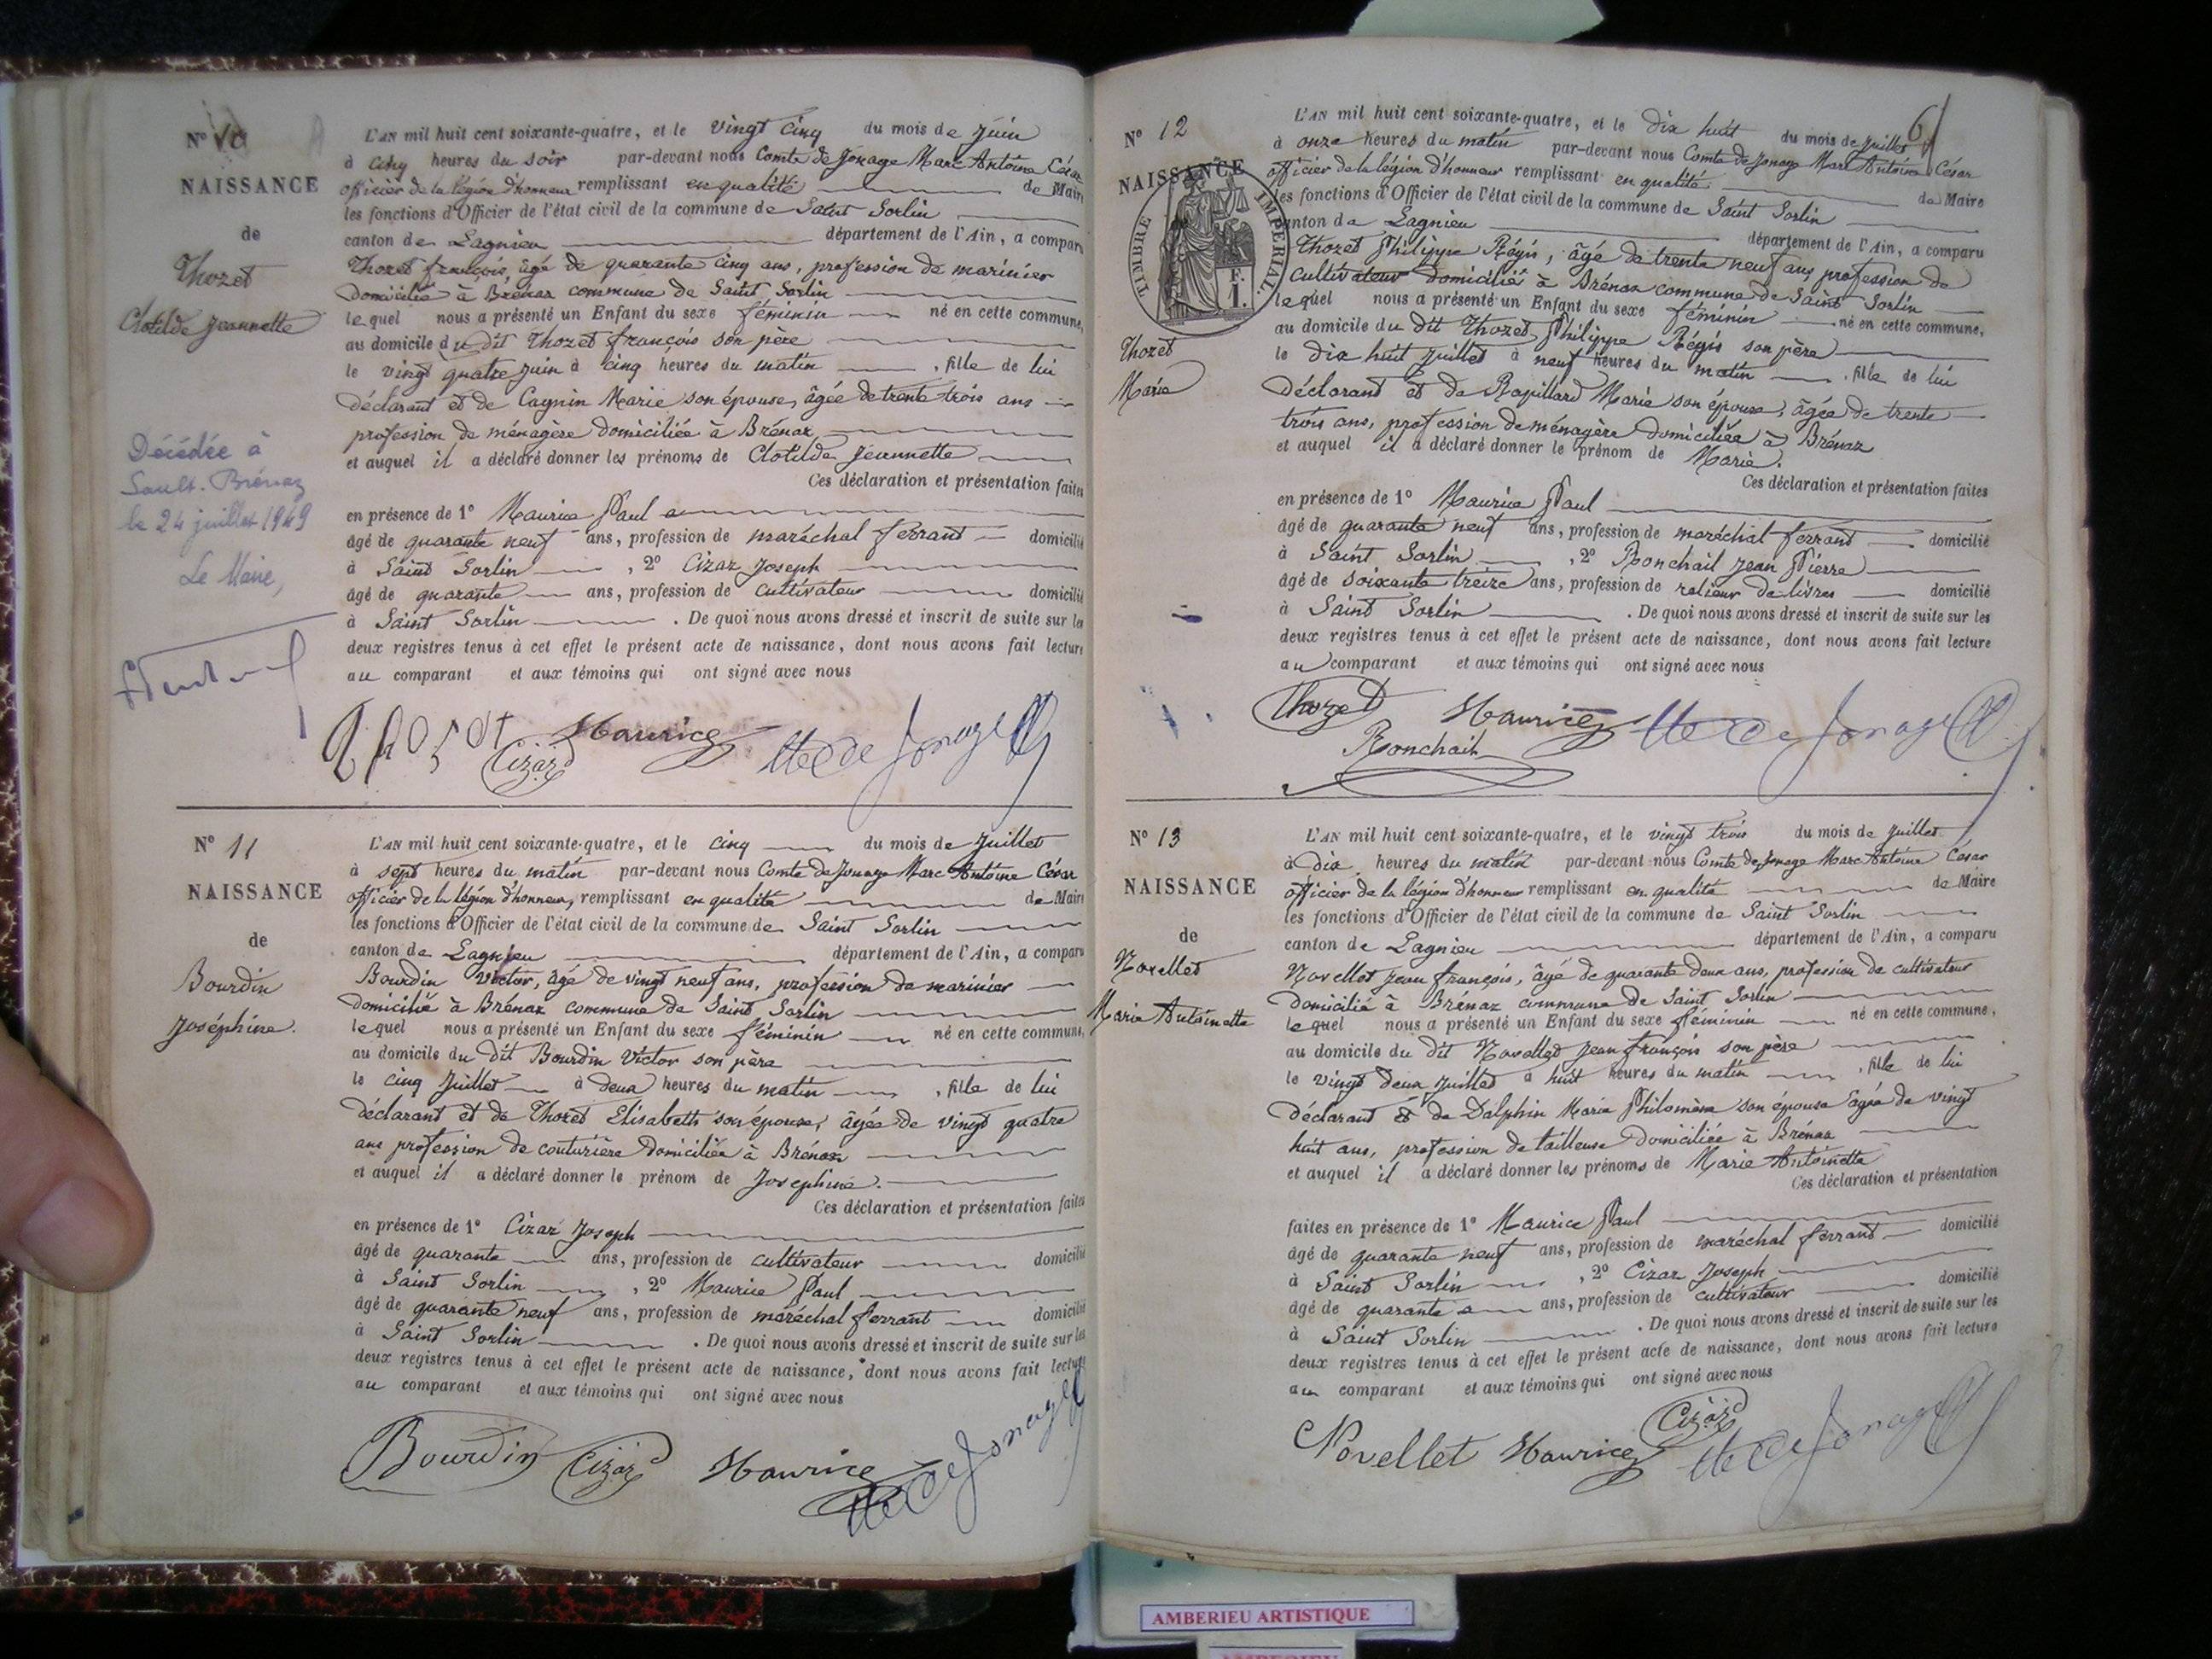 Nº 10
NAISSANCE
de
Thozet
Clotilde Jeannette
Décédée à
Sault-Brénaz
le 24 juillet 1949
Le Maire,
L'AN mil huit cent soixante-quatre, et le vingt cinq du mois de Juin
à cinq heures du soir par-devant nous Comte de Jonage Marc Antoine César
officier de la légion d'honneur remplissant en qualité de Maire
les fonctions d'Officier de l'état civil de la commune de Saint Sorlin
canton de Lagnieu département de l'Ain, a comparu
Thozet françois, âgé de quarante cinq ans, profession de marinier
domicilié à Brénaz commune de Saint Sorlin
lequel nous a présenté un Enfant du sexe féminin né en cette commune,
au domicile du dit Thozet françois son père
le vingt quatre juin à cinq heures du matin , fille de lui
déclarant et de Cagnin Marie son épouse, âgée de trente trois ans
profession de ménagère domiciliée à Brénaz
et auquel il a déclaré donner les prénoms de Clotilde Jeannette
Ces déclaration et présentation faites
en présence de 1º Maurice Paul
âgé de quarante neuf ans, profession de maréchal ferrant domicilié
à Saint Sorlin , 2º Cizaz Joseph
âgé de quarante ans, profession de cultivateur domicilié
à Saint Sorlin . De quoi nous avons dressé et inscrit de suite sur les
deux registres tenus à cet effet le présent acte de naissance, dont nous avons fait lecture
au comparant et aux témoins qui ont signé avec nous
Thozet Maurice Cte de Jonage
Cizaz
Nº 11
NAISSANCE
de
Bourdin
Joséphine.
L'AN mil huit cent soixante-quatre, et le cinq du mois de Juillet
à sept heures du matin par-devant nous Comte de Jonage Marc Antoine César
officier de la légion d'honneur, remplissant en qualité de Maire
les fonctions d'Officier de l'état civil de la commune de Saint Sorlin
canton de Lagnieu département de l'Ain, a comparu
Bourdin Victor, âgé de vingt neuf ans, profession de marinier
domicilié à Brénaz commune de Saint Sorlin
lequel nous a présenté un Enfant du sexe féminin né en cette commune,
au domicile du dit Bourdin Victor son père
le cinq Juillet à deux heures du matin , fille de lui
déclarant et de Thozet Elisabeth son épouse, âgée de vingt quatre
ans profession de couturière domiciliée à Brénaz
et auquel il a déclaré donner le prénom de Josephine.
Ces déclaration et présentation faites
en présence de 1º Cizaz Joseph
âgé de quarante ans, profession de cultivateur domicilié
à Saint Sorlin , 2º Maurice Paul
âgé de quarante neuf ans, profession de maréchal ferrant domicilié
à Saint Sorlin . De quoi nous avons dressé et inscrit de suite sur les
deux registres tenus à cet effet le présent acte de naissance, dont nous avons fait lecture
au comparant et aux témoins qui ont signé avec nous
Bourdin Cizaz Maurice Cte de Jonage
6
Nº 12
NAISSANCE
TIMBRE IMPERIAL.
F.
1.
Thozet
Marie
L'AN mil huit cent soixante-quatre, et le dix huit du mois de Juillet
à onze heures du matin par-devant nous Comte de Jonage Marc Antoine César
officier de la légion d'honneur remplissant en qualité de Maire
les fonctions d'Officier de l'état civil de la commune de Saint Sorlin
canton de Lagnieu département de l'Ain, a comparu
Thozet Philippe Régis, âgé de trente neuf ans profession de
cultivateur domicilié à Brénaz commune de Saint Sorlin
lequel nous a présenté un Enfant du sexe féminin né en cette commune,
au domicile du dit Thozet Philippe Régis son père
le dix huit Juillet à neuf heures du matin , fille de lui
déclarant et de Marie son épouse, âgée de trente
trois ans, profession de ménagère domiciliée à Brénaz
et auquel il a déclaré donner le prénom de Marie.
Ces déclaration et présentation faites
en présence de 1º Maurice Paul
âgé de quarante neuf ans, profession de maréchal ferrant domicilié
à Saint Sorlin , 2º Ronchail Jean Pierre
âgé de soixante treize ans, profession de relieur de livres domicilié
à Saint Sorlin . De quoi nous avons dressé et inscrit de suite sur les
deux registres tenus à cet effet le présent acte de naissance, dont nous avons fait lecture
au comparant et aux témoins qui ont signé avec nous
Thozet Maurice Cte de Jonage
Ronchail
Nº 13
NAISSANCE
de
Novellet
Marie Antoinette
L'AN mil huit cent soixante-quatre, et le vingt trois du mois de Juillet
à dix heures du matin par-devant nous Comte de Jonage Marc Antoine César
officier de la légion d'honneur remplissant en qualité de Maire
les fonctions d'Officier de l'état civil de la commune de Saint Sorlin
canton de Lagnieu département de l'Ain, a comparu
Novellet Jean françois, âgé de quarante deux ans, profession de cultivateur
domicilié à Brénaz commune de Saint Sorlin
lequel nous a présenté un Enfant du sexe féminin né en cette commune,
au domicile du dit Novellet Jean françois son père
le vingt deux Juillet à huit heures du matin , fille de lui
déclarant et de Dalphin Marie Philomène son épouse âgée de vingt
huit ans, profession de tailleuse domiciliée à Brénaz
et auquel il a déclaré donner les prénoms de Marie Antoinette
Ces déclaration et présentation
faites en présence de 1º Maurice Paul
âgé de quarante neuf ans, profession de maréchal ferrant domicilié
à Saint Sorlin , 2º Cizaz Joseph
âgé de quarante ans, profession de cultivateur domicilié
à Saint Sorlin . De quoi nous avons dressé et inscrit de suite sur les
deux registres tenus à cet effet le présent acte de naissance, dont nous avons fait lecture
au comparant et aux témoins qui ont signé avec nous
Novellet Maurice Cizaz Cte de Jonage
AMBERIEU ARTISTIQUE
AMBERIEU